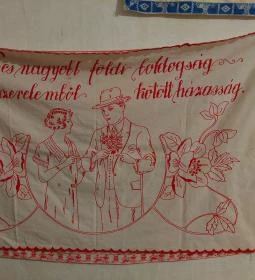 és nagyobb földi boldogság
szerelemből kötött házasság.